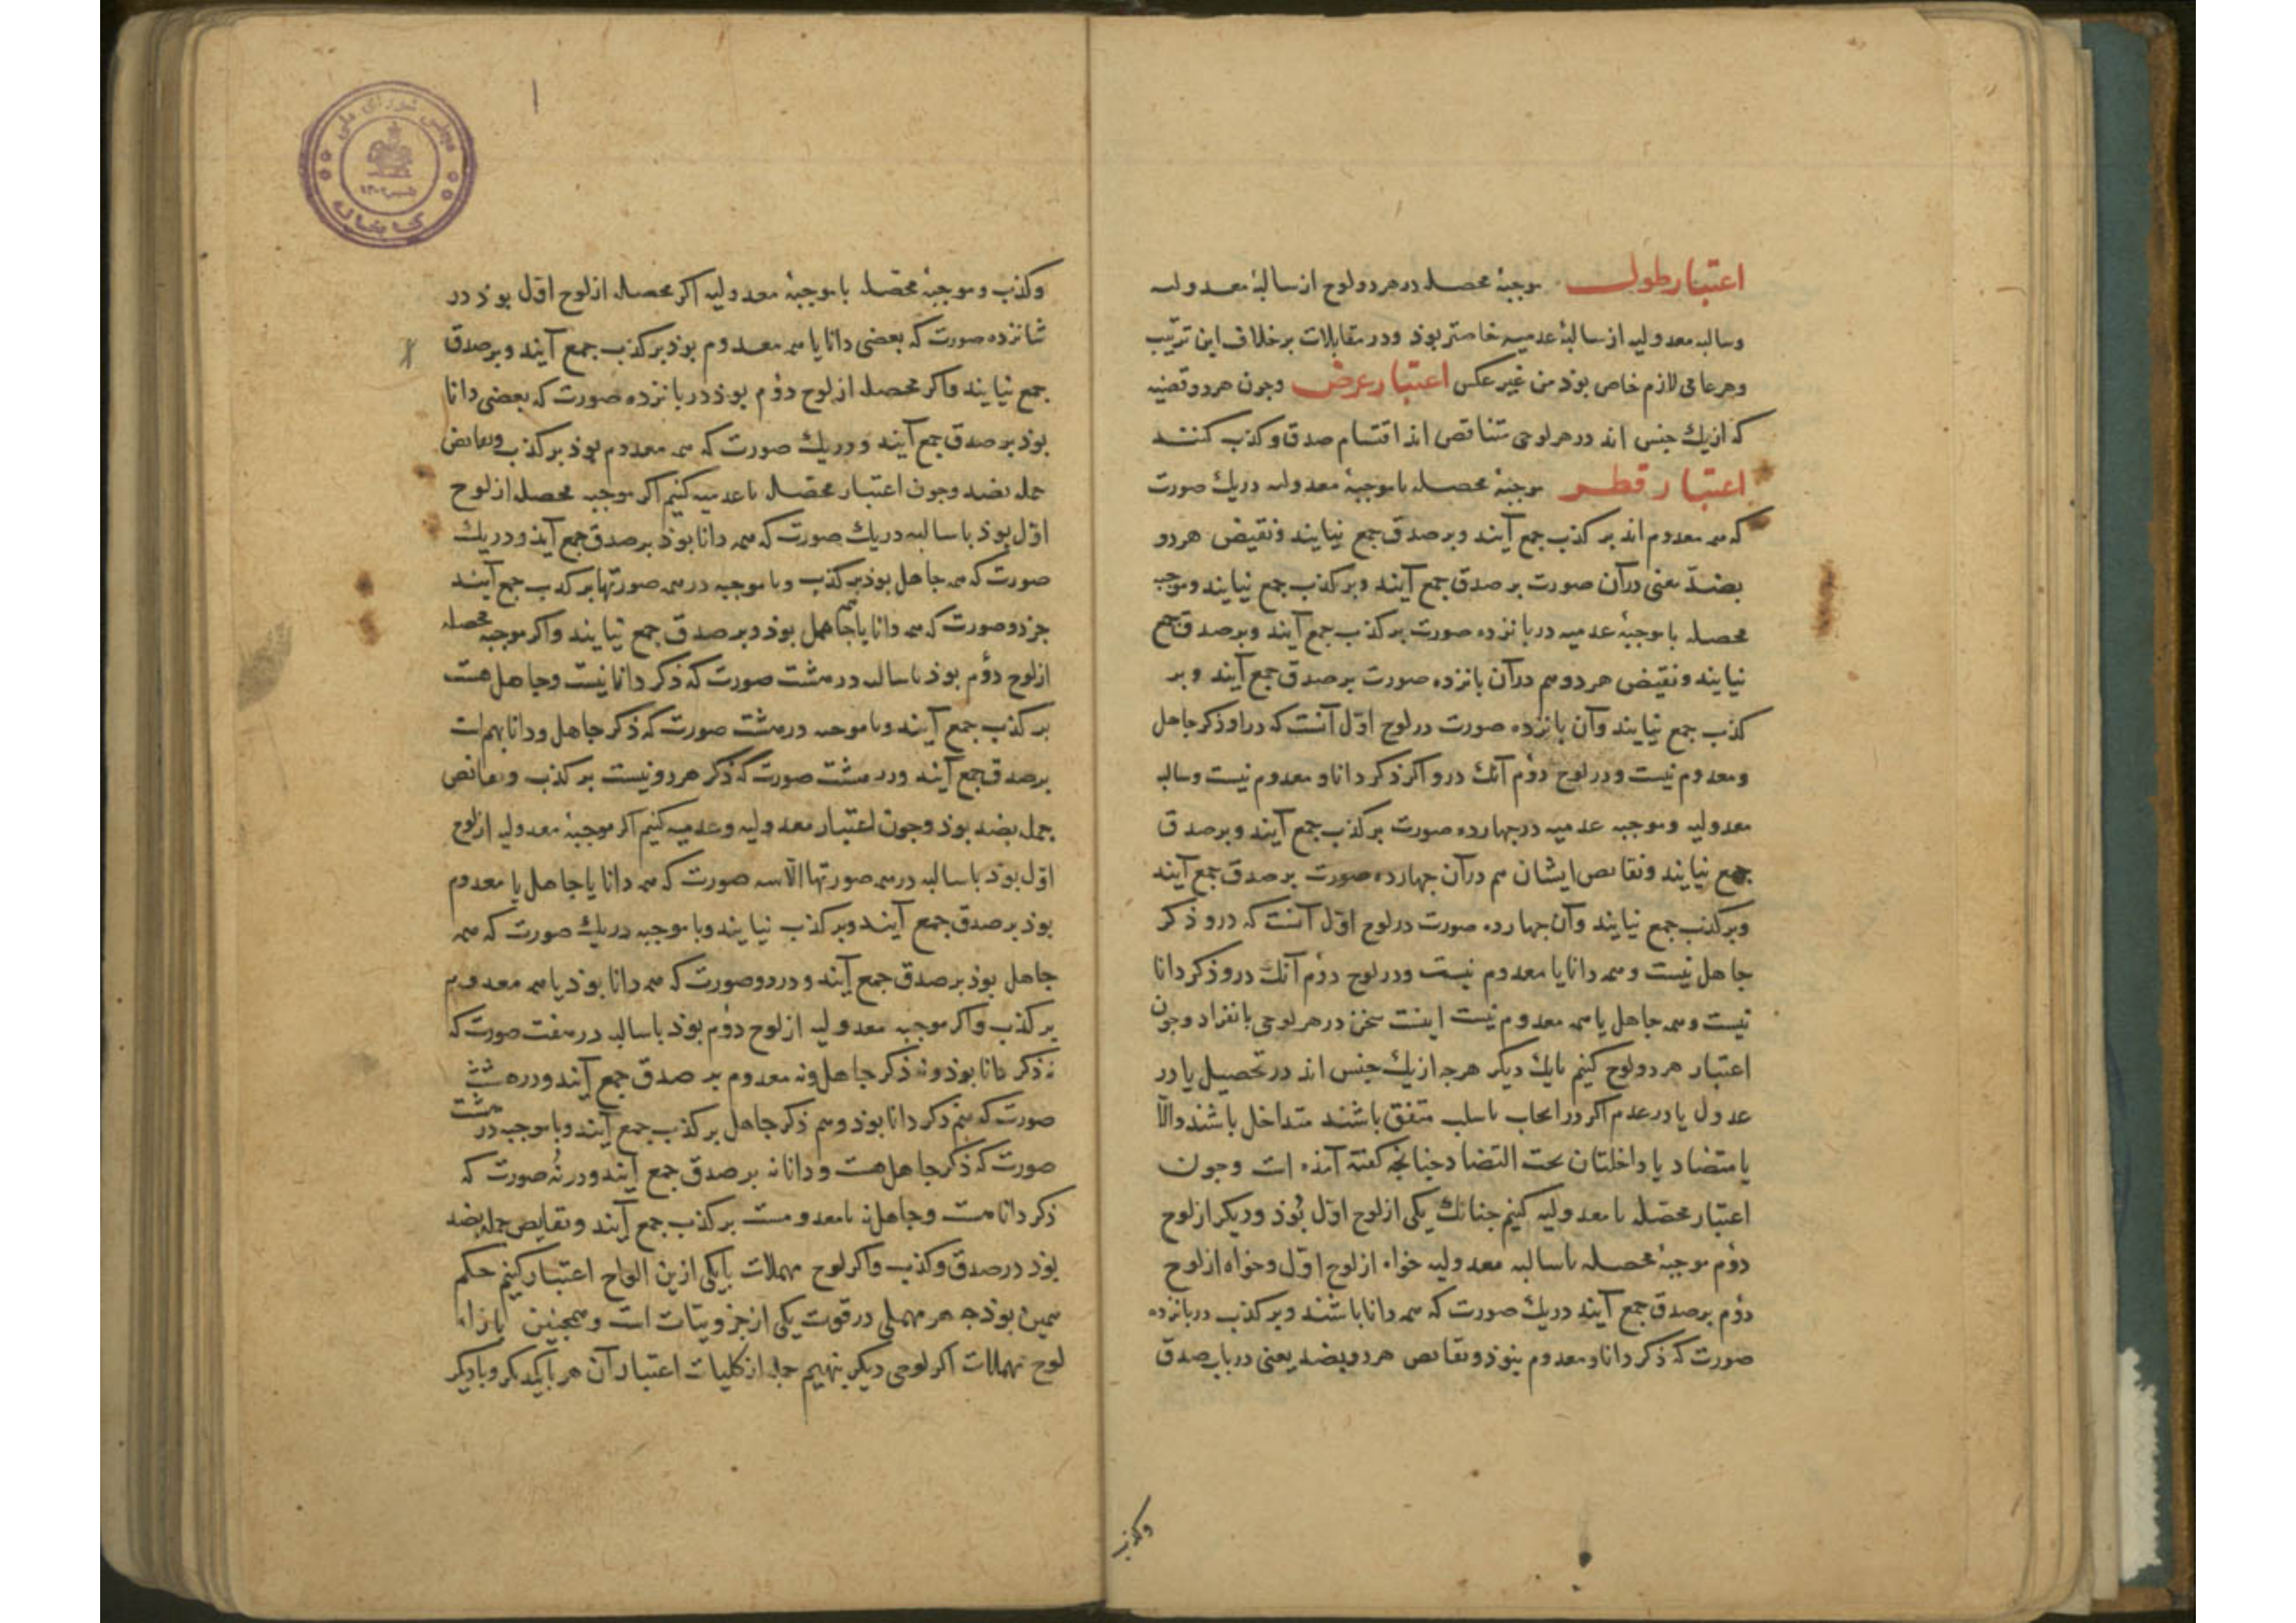 اعتبار طول موجبهٔ محصله در هر دو لوح از سالبهٔ معدولیه
و سالبه معدولیه از سالبهٔ عدمیه خاصتر بوذ و در مقابلات برخلاف این ترتیب
و هر عامی لازم خاص بوذ من غیر عکس اعتبار عرض و جون هر دو قضیه
که ازیک جنس اند در هر لوحی متناقض اند اقتسام صدق و کذب کنند
اعتبار قطر موجبهٔ محصله با موجبهٔ معدولیه در یک صورت
که همه معدوم اند بر کذب جمع آیند و بر صدق جمع نیایند و نقیض هر دو
بضدّ یعنی در آن صورت بر صدق جمع آیند و بر کذب جمع نیایند و موجبه
محصله با موجبهٔ عدمیه در بانزده صورت بر کذب جمع آیند و بر صدق جمع
نیایند و نقیض هر دو هم در آن بانزده صورت بر صدق جمع آیند و بر
کذب جمع نیایند و آن بانزده صورت در لوح اوّل آنست که در او ذکر جاهل
و معدوم نیست و در لوح دوم آنک درو اکر ذکر دانا و معدوم نیست و سالبه
معدولیه و موجبه عدمیه در جهارده صورت بر کذب جمع آیند و بر صدق
جمع نیایند و نقایص ایشان هم در آن جهارده صورت بر صدق جمع آیند
و بر کذب جمع نیایند و آن جهارده صورت در لوح اوّل آنست که درو ذکر
جاهل نیست و همه دانا یا معدوم نیست و در لوح دوم آنک درو ذکر دانا
نیست و همه جاهل یا همه معدوم نیست اینست سخن در هر لوحی بانفراد و جون
اعتبار هر دو لوح کنیم بایک دیکر هرجه ازیک جنس اند در تحصیل یا در
عدول یا در عدم اکر در ایجاب یا سلب متفق باشند متداخل باشند والّا
یا متضاد یا داخلتان تحت التضاد جنانجه کفته آمذه است و جون
اعتبار محصّله با معدولیه کنیم جنانک یکی از لوح اوّل بُوَذ و دیکر از لوح
دوم موجبهٔ محصله با سالبه معدولیه خواه از لوح اوّل و خواه از لوح
دوم بر صدق جمع آیند در یک صورت که همه دانا باشند و بر کذب در بانزده
صورت که ذکر دانا و معدوم نبوذ و نقایص هر دو بضد یعنی در باب صدق
وکذب
وکذب و موجبهٔ محصّله با موجبهٔ معدولیه اکر محصله از لوح اوّل بوذ در
شانزده صورت که بعضی دانا یا همه معدوم بوذ بر کذب جمع آیند و بر صدق
جمع نیایند و اکر محصله از لوح دوم بوذ در بانزده صورت که بعضی دانا
بوذ بر صدق جمع آیند و در یک صورت که همه معدوم بوذ بر کذب و نقایص
جمله بضد و جون اعتبار محصّله با عدمیه کنیم اکر موجبه محصله از لوح
اوّل بوذ با سالبه در یک صورت که همه دانا بوذ بر صدق جمع آیند و در یک
صورت که همه جاهل بوذ بر کذب و با موجبه در همه صورتها بر کذب جمع آیند
جز دو صورت که همه دانا یا همه جاهل بوذ و بر صدق جمع نیایند و اکر موجبه محصله
از لوح دوم بوذ با سالبه در هشت صورت که ذکر دانا نیست و جاهل هست
بر کذب جمع آیند و با موجبه در هشت صورت که ذکر جاهل و دانا بهم است
بر صدق جمع آیند و در هشت صورت که ذکر هر دو نیست بر کذب و نقایص
جمله بضد بوذ و جون اعتبار معدولیه و عدمیه کنیم اکر موجبهٔ معدولیه از لوح
اوّل بوذ با سالبه در همه صورتها الّا سه صورت که همه دانا یا جاهل یا معدوم
بوذ بر صدق جمع آیند و بر کذب نیایند و با موجبه در یک صورت که همه
جاهل بوذ بر صدق جمع آیند و در دو صورت که همه دانا بوذ یا همه معدوم
بر کذب و اکر موجبه معدولیه از لوح دوم بوذ با سالبه در هفت صورت که
نه ذکر دانا بوذ و نه ذکر جاهل و نه معدوم بر صدق جمع آیند و در هشت
صورت که هم ذکر دانا بوذ و هم ذکر جاهل بر کذب جمع آیند و با موجبه در هشت
صورت که ذکر جاهل هست و دانا نه بر صدق جمع آیند و در نُه صورت که
ذکر دانا هست و جاهل نه یا معدومست بر کذب جمع آیند و نقایص جمله بضد
بوذ در صدق و کذب و اکر لوح مهملات با یکی ازین الواح اعتبار کنیم حکم
همین بوذ جه هر مهملی در قوت یکی از جزویتات است و همجنین بازاء
لوح مهملات اکر لوحی دیکر بنهیم جمله از کلیات اعتبار آن هر با یکدیکر و با دیکر
مجلس شورای ملی
کتابخانه